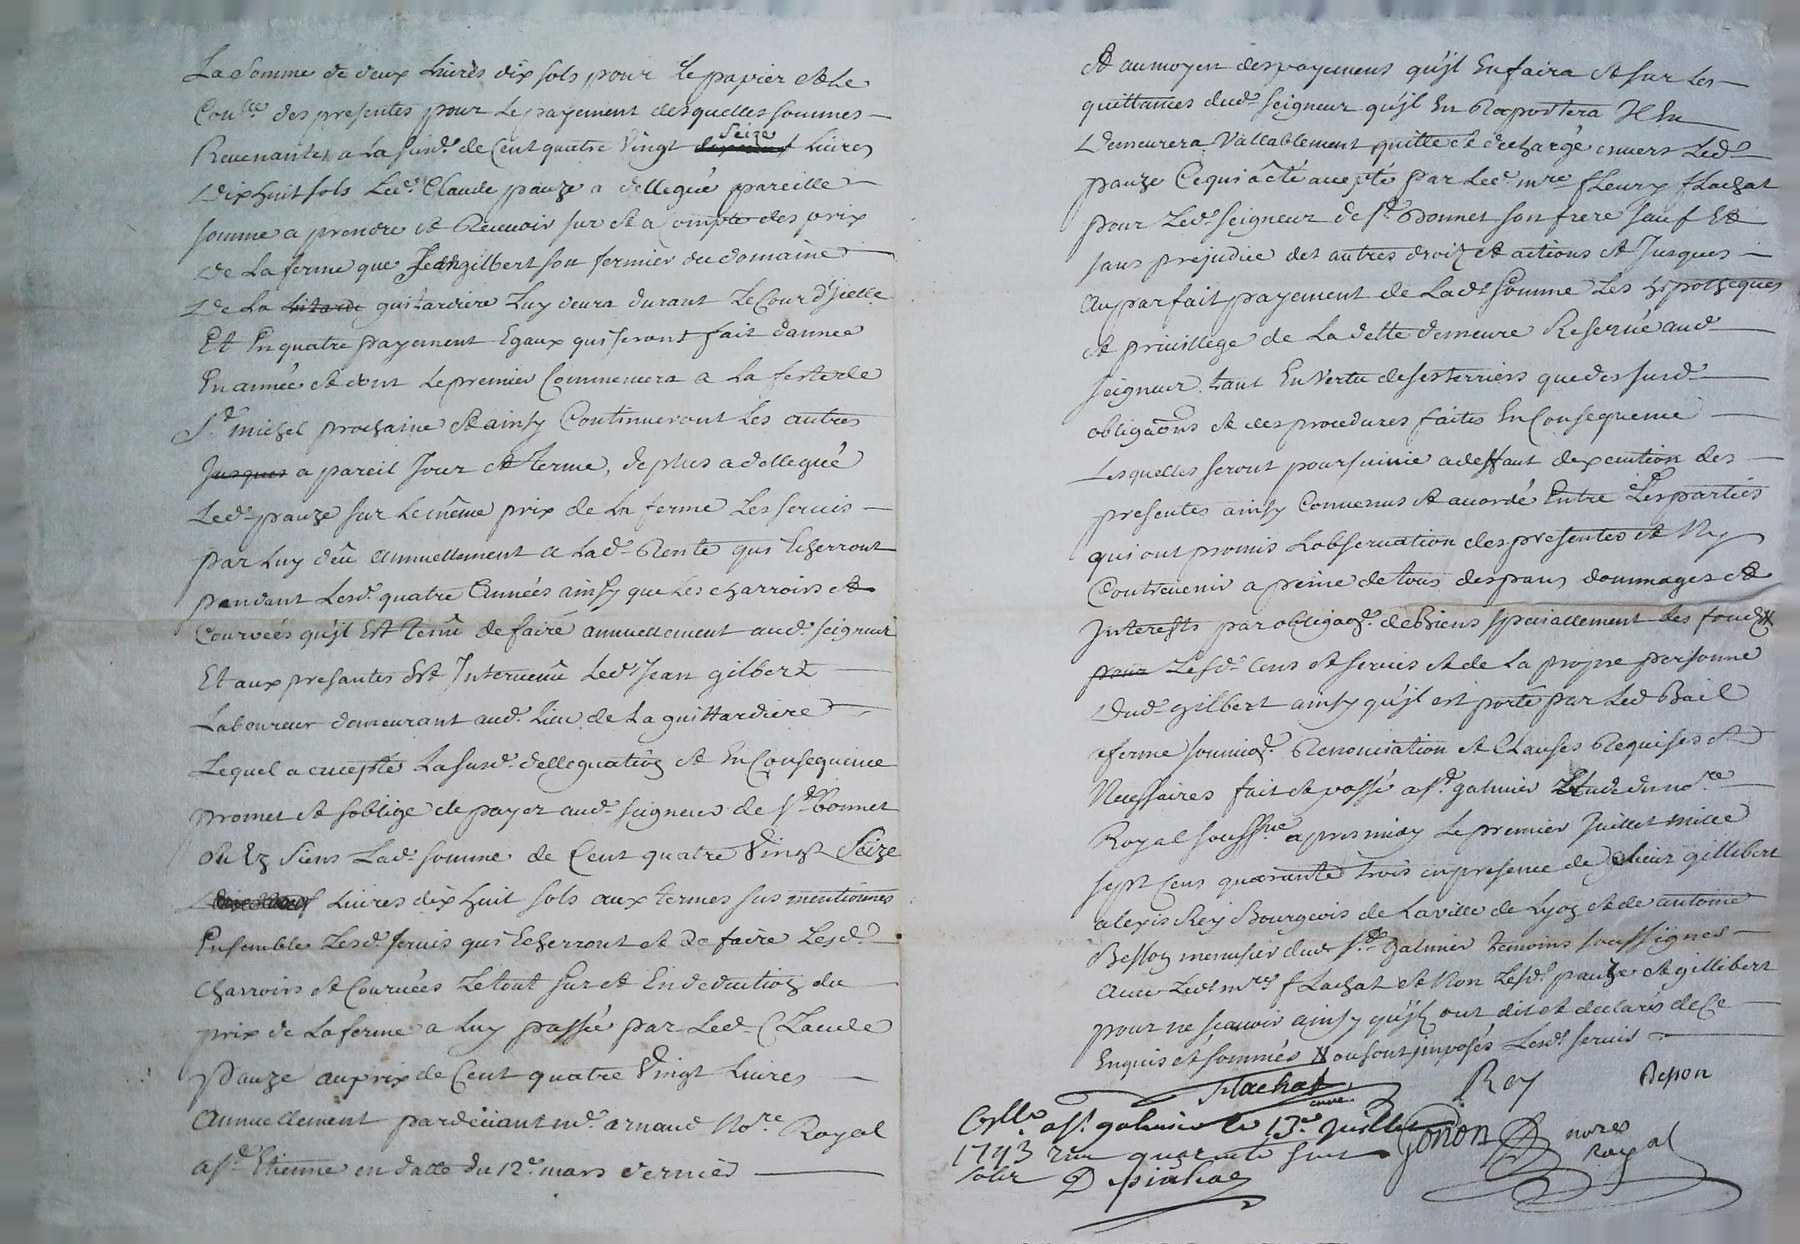 La somme de deux livres dix sols pour le papier et le
Con.lle des presentes pour le payement desquelles sommes
Revenantes a la susd.e de Cent quatre Vingt seize livres
dix huit sols led.t Claude pauze a dellegué pareille
somme a prendre et Recevoir sur et a Compte des prix
de la ferme que Jean gilbert son fermier du domaine
de la guitardiere luy devra durant le Cour d'Jcelle
Et En quatre payement Egaux qui seront fait dannée
En année et dont le premier Commencera a la feste de
S.t michel prochaine et ainsy Continueront les autres
Jusques a pareil Jour et terme, de plus a dellegué
Led.t pauze sur le même prix de la ferme les servis
par luy deû annuellement a lad.e Rente qui Echerront
pendant lesd. quatre années ainsy que les charroirs et
Courvéés qu'jl Est tenû de faire annuellement aud.t seigneur
Et aux presantes Est Jntervenû led.t Jean gilbert
Laboureur demeurant aud.t lieu de la guittardiere
Lequel a accepté la susd.e dellegation et En Consequence
promet et soblige de payer aud.t seigneur de S.t bonnet
ou Ez siens lad.e somme de Cent quatre Vingt Seize
livres dix huit sols aux termes sus mentionnés
Ensemble lesd. servis qui Echerront et de faire lesd.
charroirs et Courvéés le tout sur et En deduction du
prix de la ferme a luy passée par led.t Claude
pauze au prix de Cent quatre Vingt livres
annuellement pardevant m.e arnaud No.re Royal
a S.t Etienne en datte du 12.e mars dernier
et au moyen des payemens qu'jl En faira et sur les
quittances dud.t seigneur qu'jl En Raportera Il En
demeurera Vallablement quitte et dechargé envers led.t
pauze Ce qui à été accepté par led.t m.re fleury flachat
pour led.t seigneur de S.t bonnet son frere sauf Et
sans prejudice des autres droiz et actions et Jusques
au parfait payement de lad.e somme les hipotheques
et privillege de la dette demeure Reservée aud.t
seigneur tant En Vertu de ses terriers que des susd.
obligaôns et des procedures faites En Consequence
Lesquelles seront poursuivie a deffaut dexecution des
presentes ainsy Convenus et acordé Entre les parties
qui ont promis lobservation des presentes et Ny
Contrevenir a peine de tous despans dommages et
Jnterests par obligaôn de biens specialement des fonds
pour lesd. Cens et servis et de la propre personne
dud.t gilbert ainsy qu'jl est porté par led.t Bail
eferme soumiôn Renonciation et Clauses Requises et
Necessaires fait et passé a S.t galmier Etude du no.re
Royal soussig.né apres midy le premier Juillet mille
sept Cens quarante trois en presence de sieur gillibert
alexis Rey Bourgeois de la ville de Lyon et de antoine
Besson menusier dud.t S.t galmier temoins soussignes
avec led.t m.re flachat et Non lesd. pauze et gillibert
pour ne scavoir ainsy qu'jlz ont dit et declarés de Ce
Enquis et sommés ou sont jmposés lesd. servis
flachat
Rey
Besson
Coll.é a S.t galmier le 13.e Juillet
1743 reçu quarante huit
sols
Gonon
nores
Royal